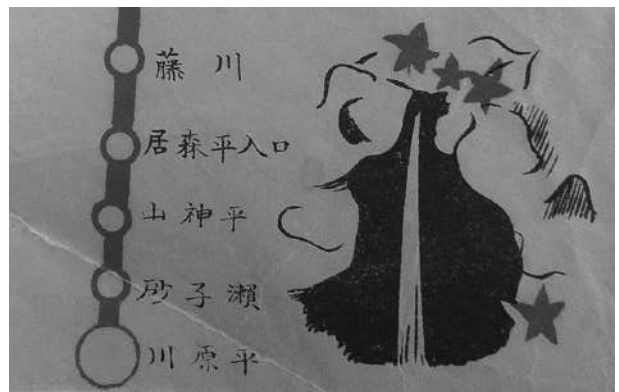 藤川
居森平入口
山神平
砂子瀬
川原平